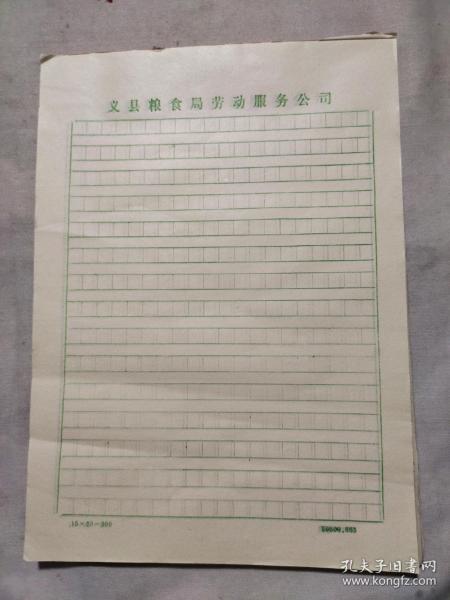 义县粮食局劳动服务公司
15×20=300
孔夫子旧书网
www.kongfz.com